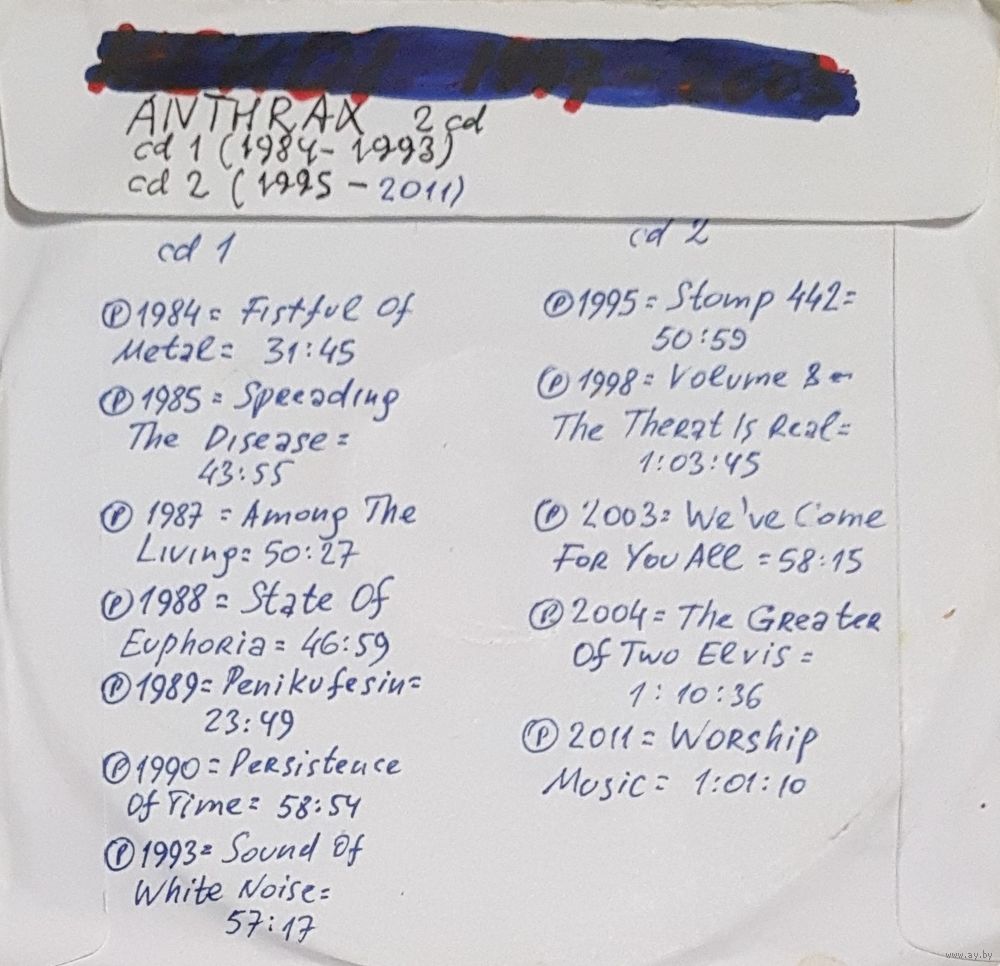 ANTHRAX 2 cd
cd 1 (1984-1993)
cd 2 (1995 - 2011)
cd 1
Ⓟ 1984 = Fistful Of
Metal = 31:45
Ⓟ 1985 = Spreading
The Disease =
43:55
Ⓟ 1987 = Among The
Living = 50:27
Ⓟ 1988 = State Of
Euphoria = 46:59
Ⓟ 1989 = Penikufesin =
23:49
Ⓟ 1990 = Persistence
Of Time = 58:54
Ⓟ 1993 = Sound Of
White Noise =
57:17
cd 2
Ⓟ 1995 = Stomp 442 =
50:59
Ⓟ 1998 = Volume 8 -
The Therat Is Real =
1:03:45
Ⓟ 2003 = We've Come
For You All = 58:15
Ⓟ 2004 = The Greater
Of Two Elvis =
1:10:36
Ⓟ 2011 = Worship
Music = 1:01:10
www.ay.by